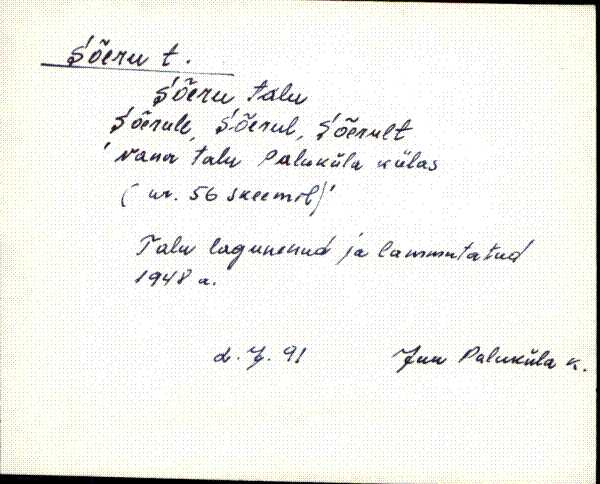 S'õeru t.
S'õeru talu
S'õerule, S'õerul, S'õerult
'vana talu Paluküla külas
(nr. 56 skeemil)'
Talu lagunenud ja lammutatud
1948 a.
2. 7. 91 Juu Paluküla k.